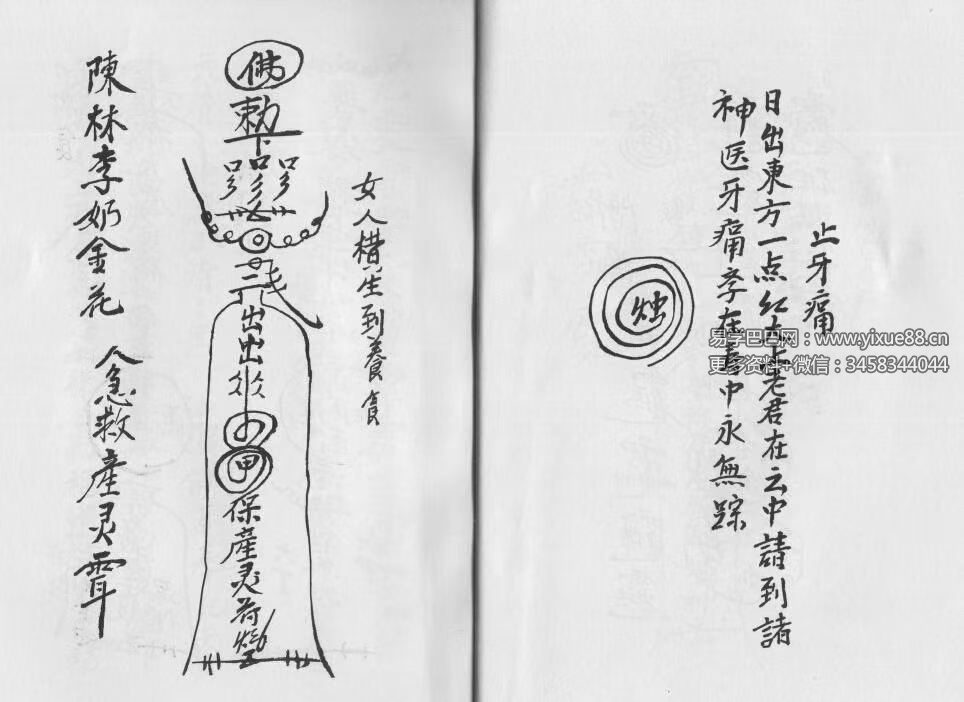 止牙痛
日出東方一点红太上老君在云中請到諸
神医牙痛 在 中永無踪
易学巴巴网：www.yixue88.cn
更多资料+微信：3458344044
女人 生到養食
佛
勅下
出出
甲
保產灵符
陳林李奶金花 急救產灵